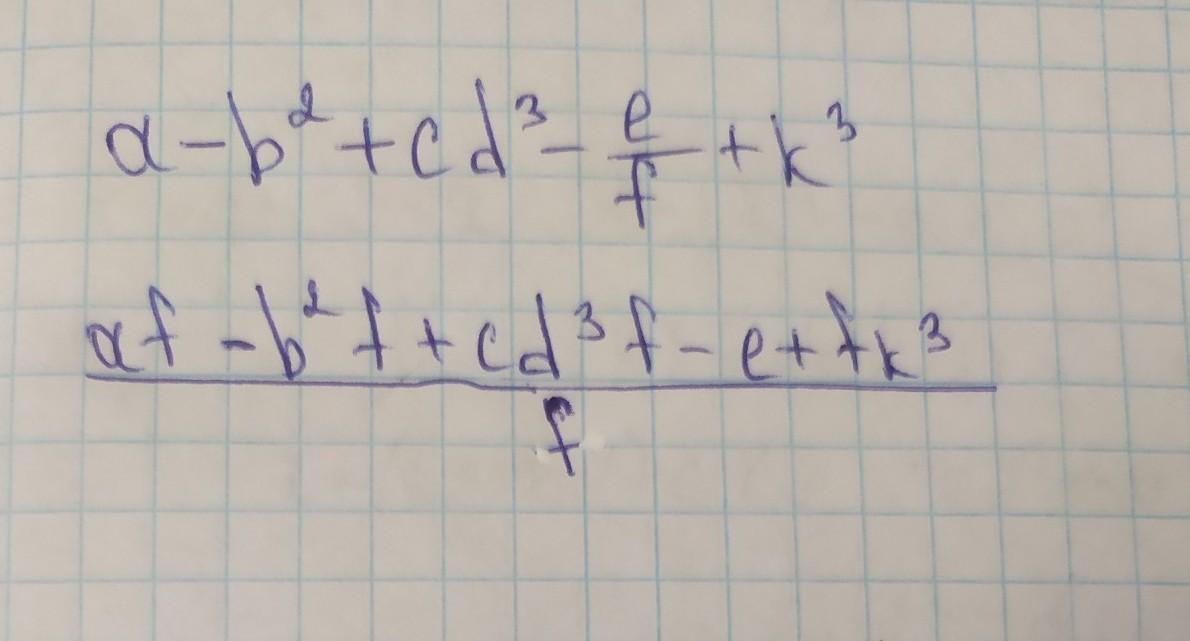 a - b² + cd³ - e/f + k³
(af - b²f + cd³f - e + fk³)/f